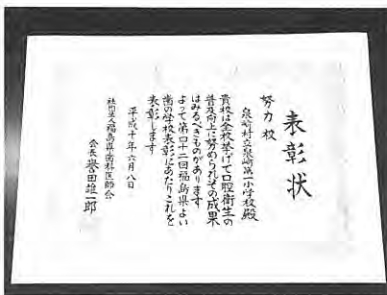 表彰状
努力校
泉崎村立泉崎第一小学校殿
貴校は全校挙げて口腔衛生の
普及向上に努められその成果
はみるべきものがあります
よって第四十二回福島県よい
歯の学校表彰にあたりこれを
表彰します
平成十年六月八日
社団法人福島県歯科医師会
会長 誉田雄一郎